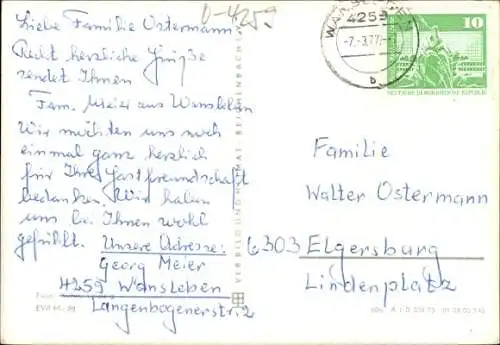 0-4259
Liebe Familie Ostermann
Recht herzliche Grüße
sendet Ihnen
Fam. Meier aus Wansleben
Wir möchten uns noch
einmal ganz herzlich
für Ihre Gastfreundschaft
bedanken. Wir haben
uns bei Ihnen wohl
gefühlt. Unsere Adresse:
Georg Meier
4259 Wansleben
Langenbogenerstr. 2
VEB BILD UND HEIMAT REICHENBACH
4259
-7.-3.77
b
10
DEUTSCHE DEMOKRATISCHE REPUBLIK
Familie
Walter Ostermann
6303 Elgersburg
Lindenplatz